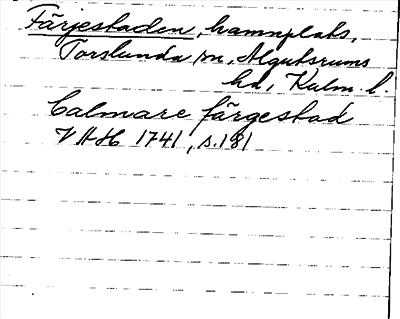 Färjestaden, hamnplats,
Torslunda sn, Algutsrums
hd, Kalm. l.
Calmare färgestad
VHH 1741, s. 181